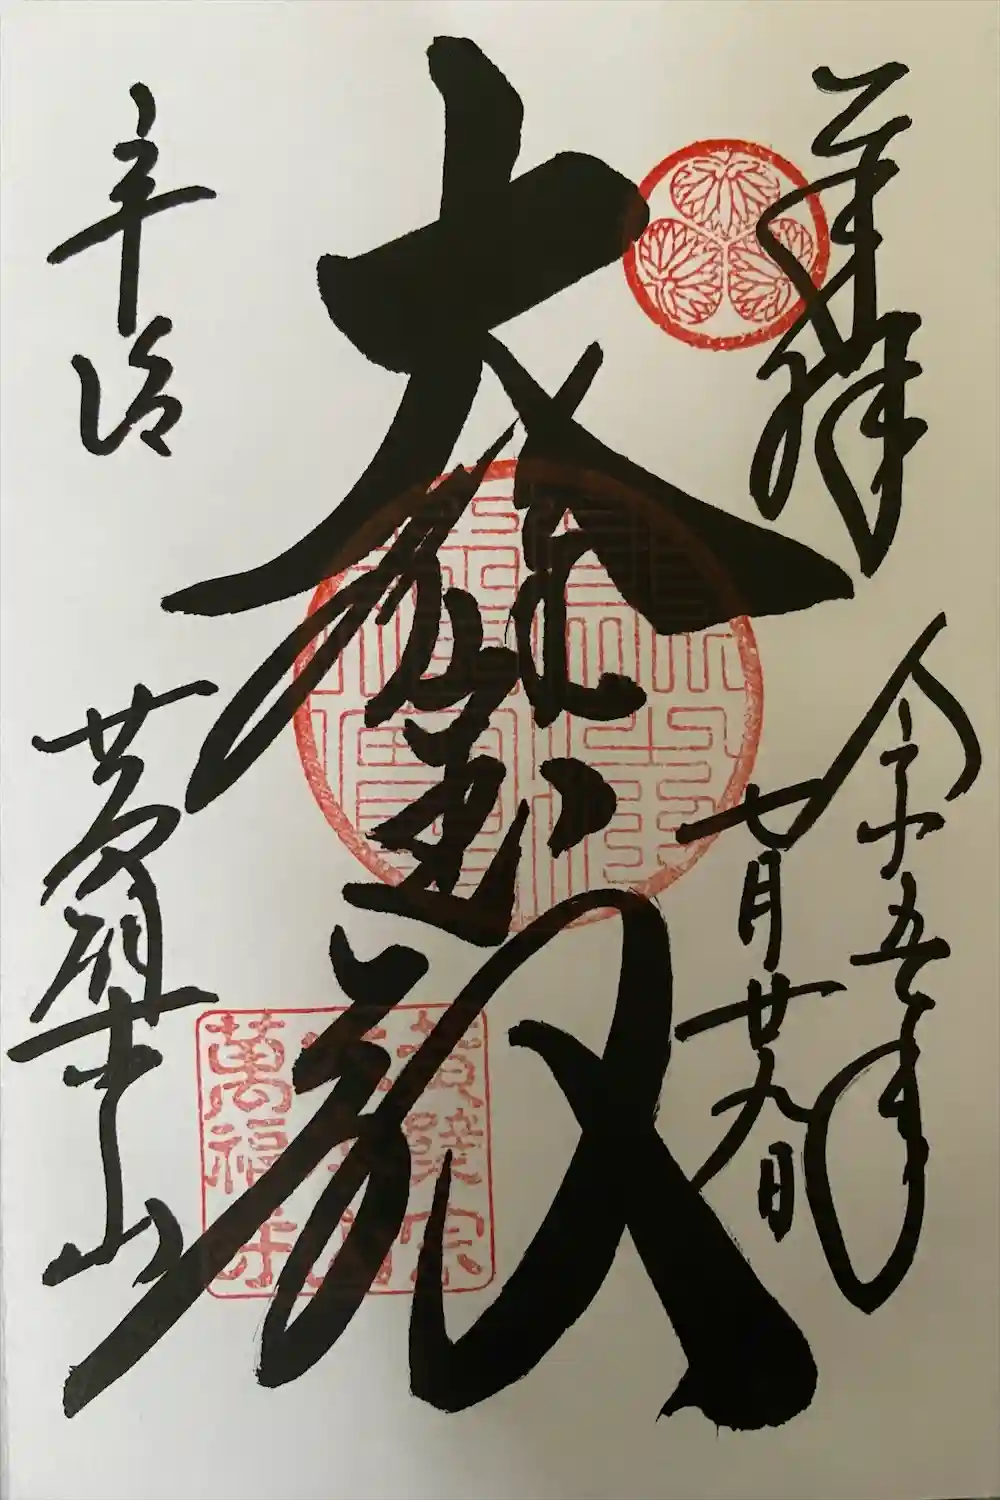 奉拝
令和五年
七月廿九日
大雄宝殿
宇治
黄檗山
黄檗宗
大本山
萬福寺